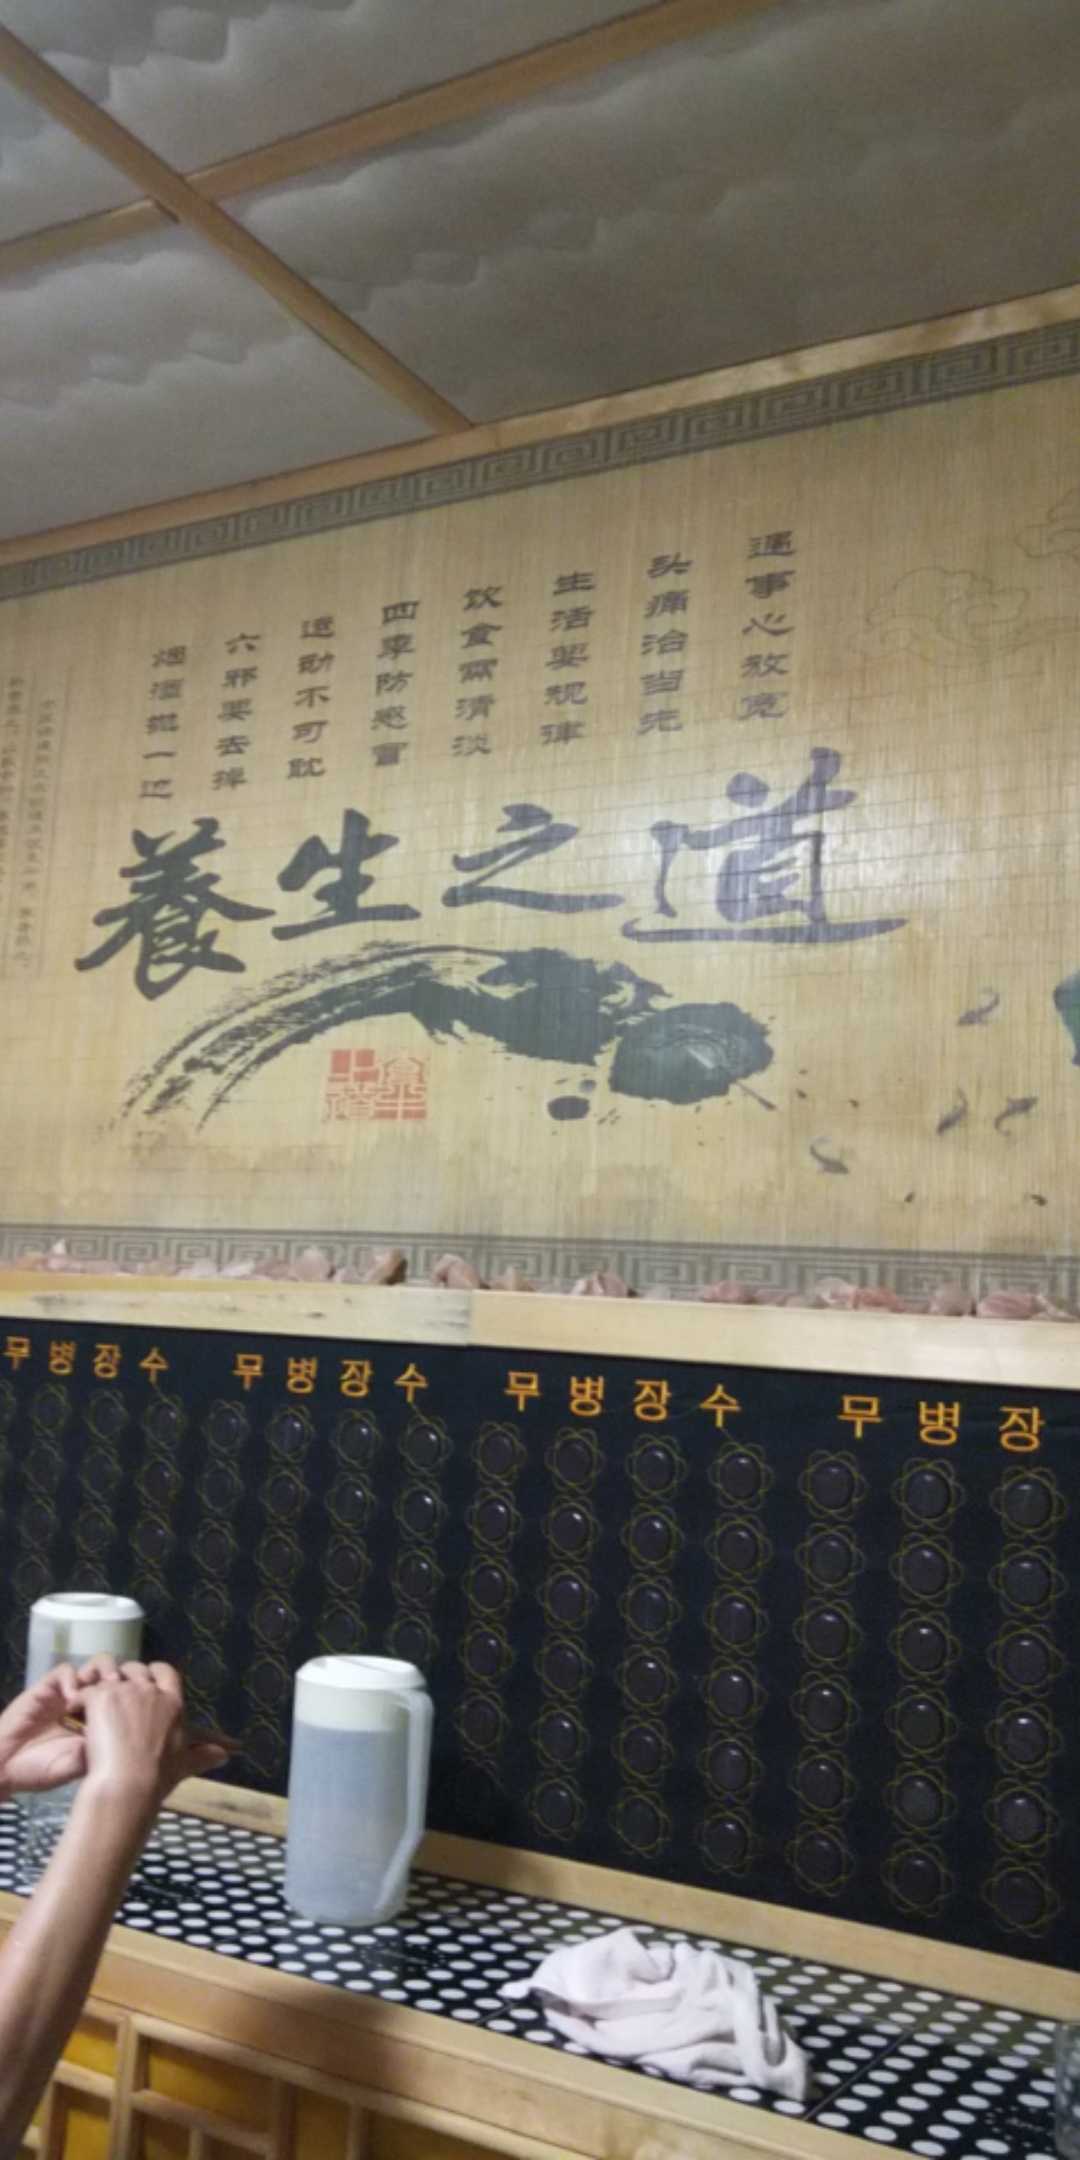 遇事心放宽
头痛治当先
生活要规律
饮食需清淡
四季防感冒
运动不可耽
六邪要去掉
烟酒抛一边
養生之道
무병장수 무병장수 무병장수 무병장